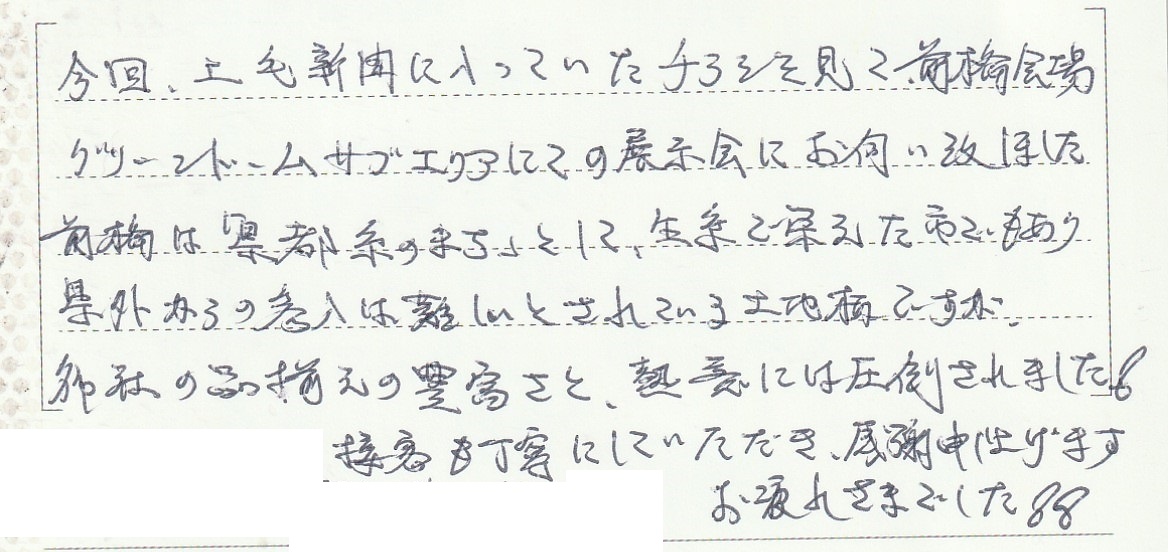 今回、上毛新聞に入っていたチラシを見て、前橋会場
グリーンドームサブエリアにての展示会にお伺い致しました
前橋は「県都糸のまち」として、生糸で栄えた市でもあり
県外からの参入は難しいとされている土地柄ですが、
御社の品揃えの豊富さと、熱意には圧倒されました。
接客も丁寧にしていただき、感謝申し上げます
お疲れさまでした